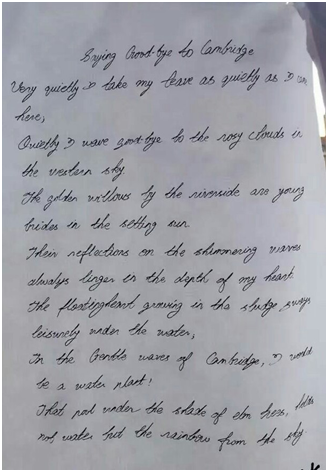 Saying Good-bye to Cambridge
Very quietly I take my leave as quietly as I came
here,
Quietly I wave good-bye to the rosy clouds in
the western sky
The golden willows by the riverside are young
brides in the setting sun
Their reflections on the shimmering waves
always linger in the depth of my heart
The floatingheart growing in the sludge sways
leisurely under the water,
In the Gentle waves of Cambridge, I would
be a water plant!
That pool under the shade of elm trees, holds
not water but the rainbow from the sky